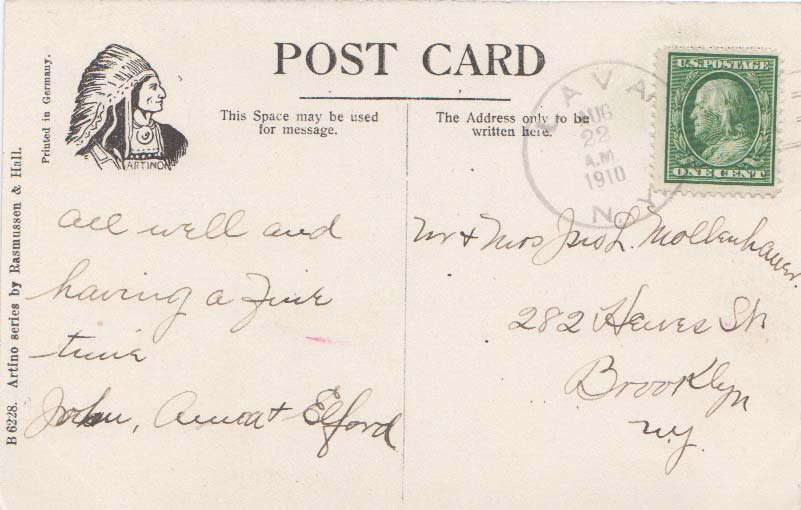 POST CARD
Printed in Germany.
ARTINO
This Space may be used
for message.
The Address only to be
written here.
LAVA
AUG
22
A.M.
1910
N.Y.
U.S. POSTAGE
ONE CENT
B 6228. Artino series by Rasmussen & Hall.
all well and
having a Fine
time
John, Anna + Elford
Mr + Mrs Jno L. Mollenhauer.
282 Hewes St
Brooklyn
N.Y.